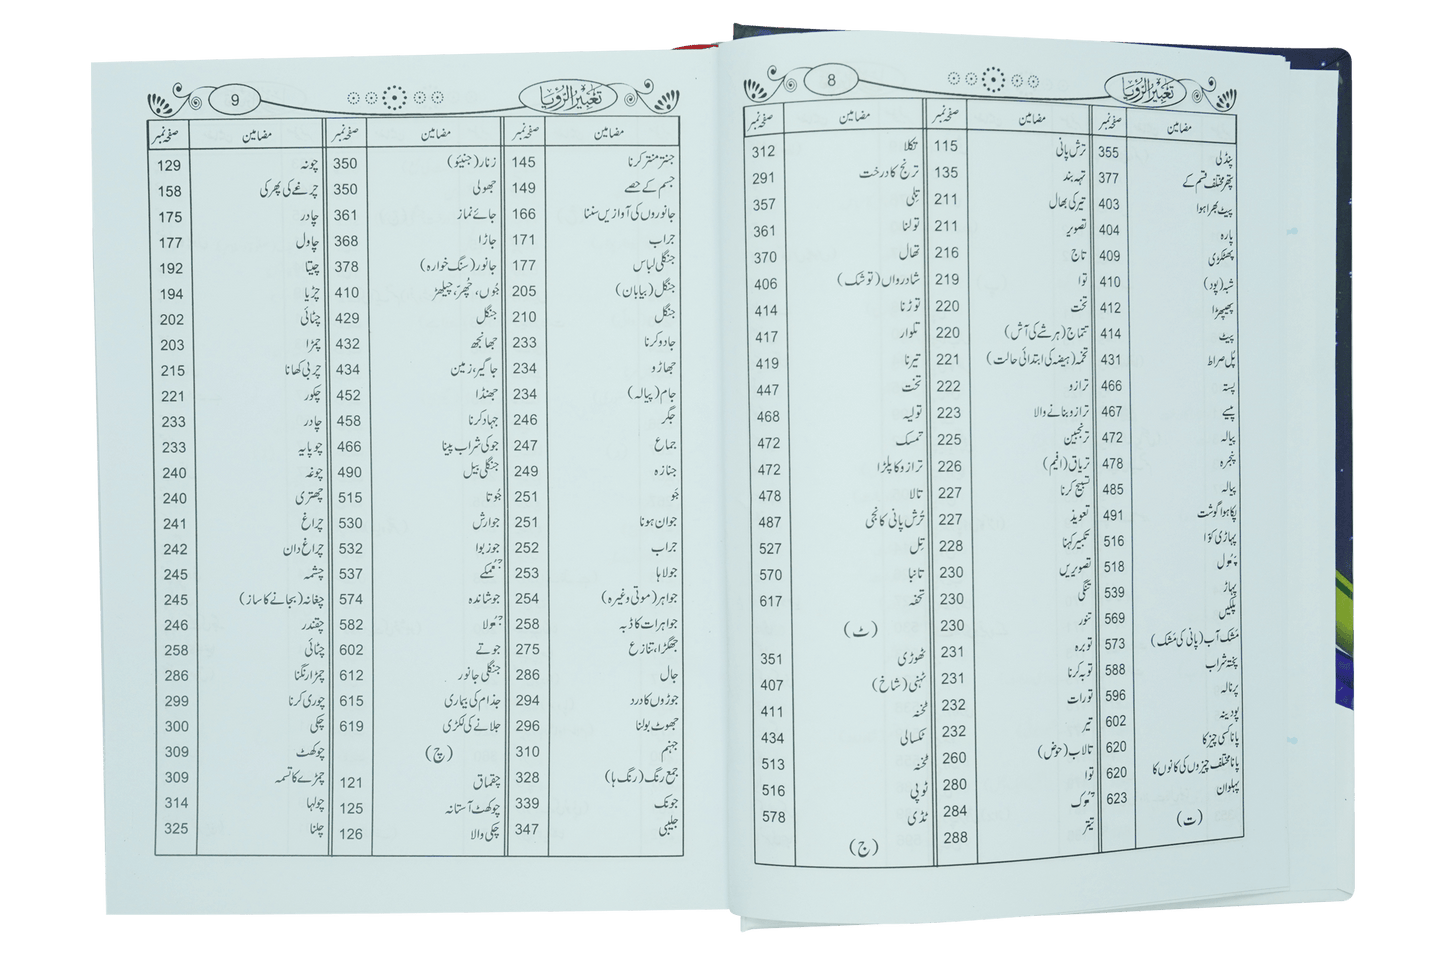 8
تعبیر الرؤیا
مضامین صفحہ نمبر
پنڈلی 355
پتھر مختلف قسم کے 377
پیٹ بھرا ہوا 403
پارہ 404
پھٹکڑی 409
شبہ (پود) 410
پھیپھڑا 412
پیٹ 414
پل صراط 431
پستہ 466
پیسے 467
پیالہ 472
پنجرہ 478
پیالہ 485
پکا ہوا گوشت 491
پہاڑی کوّا 516
پھول 518
پہاڑ 539
پلکیں 569
مَشک آب (پانی کی مَشک) 573
پختہ شراب 588
پرنالہ 596
پودینہ 602
پانا کسی چیز کا 620
پانا مختلف چیزوں کی کانوں کا 620
پہلوان 623
(ت)
مضامین صفحہ نمبر
ترش پانی 115
تہہ بند 135
تیر کی بھال 211
تصویر 211
تاج 216
توا 219
تخت 220
تتماج (ہر شے کی آش) 220
تخمہ (ہیضہ کی ابتدائی حالت) 221
ترازو 222
ترازو بنانے والا 223
ترنجبین 225
تریاق (افیم) 226
تسبیح کرنا 227
تعویذ 227
تکبیر کہنا 228
تصویریں 230
تنگی 230
تنور 230
توبرہ 231
توبہ کرنا 231
تورات 232
تیر 232
تالاب (حوض) 260
توا 280
تھوک 284
تیتر 288
مضامین صفحہ نمبر
تکلا 312
ترنج کا درخت 291
تِلی 357
تولنا 361
تھال 370
شادرواں (توشک) 406
توڑنا 414
تلوار 417
تیرنا 419
تخت 447
تولیہ 468
تمسک 472
ترازو کا پلڑا 472
تالا 478
تُرش پانی کانجی 487
تِل 527
تانبا 570
تحفہ 617
(ٹ)
ٹھوڑی 351
ٹہنی (شاخ) 407
ٹخنہ 411
ٹکسالی 434
ٹخنہ 513
ٹوپی 516
ٹڈی 578
(ج)
9
تعبیر الرؤیا
مضامین صفحہ نمبر
جنتر منتر کرنا 145
جسم کے حصے 149
جانوروں کی آوازیں سننا 166
جراب 171
جنگلی لباس 177
جنگل (بیابان) 205
جنگل 210
جادو کرنا 233
جھاڑو 234
جام (پیالہ) 234
جگر 246
جماع 247
جنازہ 249
جَو 251
جوان ہونا 251
جراب 252
جولاہا 253
جواہر (موتی وغیرہ) 254
جواہرات کا ڈبہ 258
جھگڑا، تنازع 275
جال 286
جوڑوں کا درد 294
جھوٹ بولنا 296
جہنم 310
جمع رنگ (رنگ ہا) 328
جونک 339
جلیبی 347
مضامین صفحہ نمبر
زنار (جنیئو) 350
جھولی 350
جائے نماز 361
جاڑا 368
جانور (سنگ خوارہ) 378
جُوں، چھّر، چیلھڑ 410
جنگل 429
جھانجھ 432
جاگیر، زمین 434
جھنڈا 452
جہاد کرنا 458
جو کی شراب پینا 466
جنگلی بیل 490
جُوتا 515
جوارش 530
جوز بوا 532
جھمکے 537
جوشاندہ 574
جھولا 582
جوتے 602
جنگلی جانور 612
جذام کی بیماری 615
جلانے کی لکڑی 619
(چ)
چقماق 121
چوکھٹ آستانہ 125
چکی والا 126
مضامین صفحہ نمبر
چونہ 129
چرغے کی پھرکی 158
چادر 175
چاول 177
چیتا 192
چڑیا 194
چٹائی 202
چمڑا 203
چربی کھانا 215
چکور 221
چادر 233
چوپایہ 233
چوغہ 240
چھتری 240
چراغ 241
چراغ دان 242
چشمہ 245
چغانہ (بجانے کا ساز) 245
چقندر 246
چٹائی 258
چمڑا رنگنا 286
چوری کرنا 299
چکی 300
چوکھٹ 309
چمڑے کا تسمہ 309
چولہا 314
چلنا 325